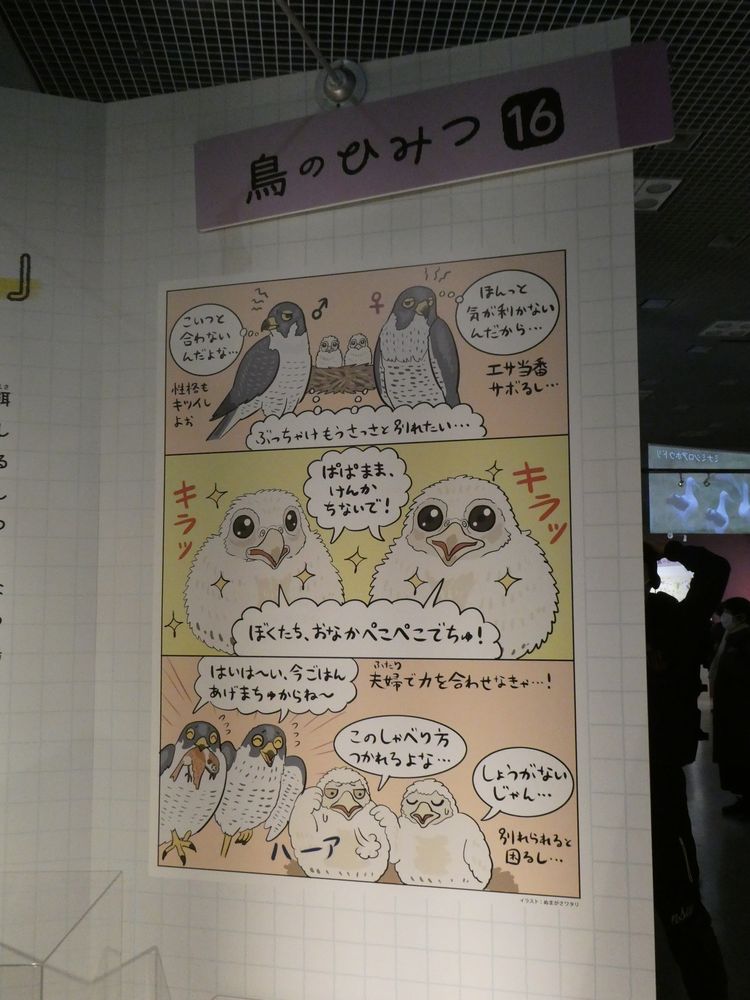 鳥のひみつ 16
こいつと
合わない
んだよな…
♂
♀
ほんっと
気が利かない
んだから…
性格も
キツイし
よお
エサ当番
サボるし…
ぶっちゃけもうさっさと別れたい…
キラッ
ぱぱまま、
けんか
ちないで!
キラッ
ぼくたち、おなかぺこぺこでちゅ!
はいは〜い、今ごはん
あげまちゅからね〜
ふたり
夫婦で力を合わせなきゃ…!
このしゃべり方
つかれるよな…
しょうがない
じゃん…
ハーア
別れられると
困るし…
イラスト:ぬまがさワタリ
ミナミシロアホウドリ